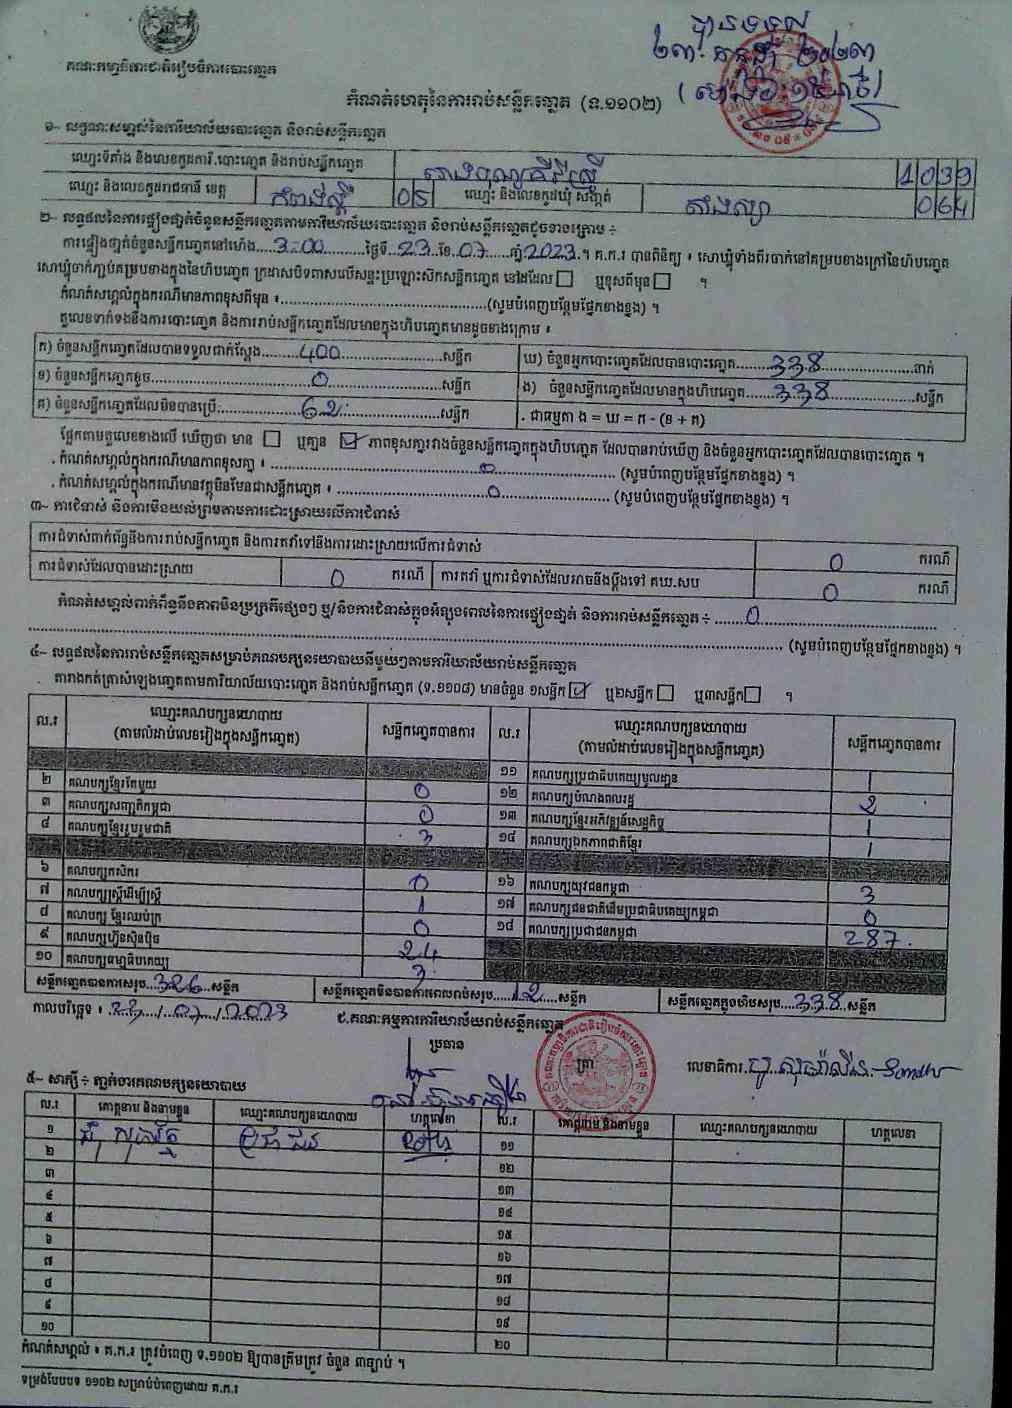 គណៈកម្មាធិការជាតិរៀបចំការបោះឆ្នោត
បានទទួល
២៣ កក្កដា ២០២៣
កំណត់ហេតុនៃការរាប់សន្លឹកឆ្នោត (ទ.១១០២)
១- លក្ខណៈសម្គាល់នៃការិយាល័យបោះឆ្នោត និងរាប់សន្លឹកឆ្នោត
ឈ្មោះទីតាំង និងលេខកូដការិ.បោះឆ្នោត និងរាប់សន្លឹកឆ្នោត 1039
ឈ្មោះ និងលេខកូដរាជធានី ខេត្ត កំពង់ស្ពឺ 05 ឈ្មោះ និងលេខកូដឃុំ សង្កាត់ 064
២- លទ្ធផលនៃការផ្ទៀងផ្ទាត់ចំនួនសន្លឹកឆ្នោតតាមការិយាល័យបោះឆ្នោត និងរាប់សន្លឹកឆ្នោតដូចខាងក្រោម ÷
ការផ្ទៀងផ្ទាត់ចំនួនសន្លឹកឆ្នោតនៅម៉ោង....3-00....ថ្ងៃទី...23...ខែ.07...ឆ្នាំ.2023.។ គ.ក.រ បានពិនិត្យ ៖ សោឃ្លុំទាំងពីរចាក់នៅគម្របខាងក្រៅនៃហិបឆ្នោត
សោឃ្លុំចាក់ភ្ជាប់គម្របខាងក្នុងនៃហិបឆ្នោត ក្រដាសបិទពាសលើសន្ទះប្រឡោះសិកសន្លឹកឆ្នោត នៅដដែល ☐ ឬខុសពីមុន ☐ ។
កំណត់សម្គាល់ក្នុងករណីមានភាពខុសពីមុន ៖..........(សូមបំពេញបន្ថែមផ្នែកខាងខ្នង) ។
តួលេខទាក់ទងនឹងការបោះឆ្នោត និងការរាប់សន្លឹកឆ្នោតដែលមានក្នុងហិបឆ្នោតមានដូចខាងក្រោម ៖
ក) ចំនួនសន្លឹកឆ្នោតដែលបានទទួលជាក់ស្តែង.....400.....សន្លឹក ឃ) ចំនួនអ្នកបោះឆ្នោតដែលបានបោះឆ្នោត.....338.....នាក់
ខ) ចំនួនសន្លឹកឆ្នោតខូច.....0.....សន្លឹក ង) ចំនួនសន្លឹកឆ្នោតដែលមានក្នុងហិបឆ្នោត.....338.....សន្លឹក
គ) ចំនួនសន្លឹកឆ្នោតដែលមិនបានប្រើ.....62.....សន្លឹក . ជាធម្មតា ង = ឃ = ក - (ខ + គ)
ផ្អែកតាមតួលេខខាងលើ ឃើញថា មាន ☐ ឬគ្មាន ☑ ភាពខុសគ្នារវាងចំនួនសន្លឹកឆ្នោតក្នុងហិបឆ្នោត ដែលបានរាប់ឃើញ និងចំនួនអ្នកបោះឆ្នោតដែលបានបោះឆ្នោត ។
. កំណត់សម្គាល់ក្នុងករណីមានភាពខុសគ្នា ៖ .....0..... (សូមបំពេញបន្ថែមផ្នែកខាងខ្នង) ។
. កំណត់សម្គាល់ក្នុងករណីមានវត្ថុមិនមែនជាសន្លឹកឆ្នោត ៖ .....0..... (សូមបំពេញបន្ថែមផ្នែកខាងខ្នង) ។
៣- ការជំទាស់ និងការមិនយល់ព្រមតាមការដោះស្រាយលើការជំទាស់
ការជំទាស់ពាក់ព័ន្ធនឹងការរាប់សន្លឹកឆ្នោត និងការតវ៉ាទៅនឹងការដោះស្រាយលើការជំទាស់ 0 ករណី
ការជំទាស់ដែលបានដោះស្រាយ 0 ករណី ការតវ៉ា ឬការជំទាស់ដែលអាចនឹងប្តឹងទៅ គឃ.សប 0 ករណី
កំណត់សម្គាល់ពាក់ព័ន្ធនឹងភាពមិនប្រក្រតីផ្សេងៗ ឬ/និងការជំទាស់ក្នុងអំឡុងពេលនៃការផ្ទៀងផ្ទាត់ និងការរាប់សន្លឹកឆ្នោត ÷ .....0.....
.......... (សូមបំពេញបន្ថែមផ្នែកខាងខ្នង) ។
៤- លទ្ធផលនៃការរាប់សន្លឹកឆ្នោតសម្រាប់គណបក្សនយោបាយនីមួយៗតាមការិយាល័យរាប់សន្លឹកឆ្នោត
តារាងកត់ត្រាសំឡេងឆ្នោតតាមការិយាល័យបោះឆ្នោត និងរាប់សន្លឹកឆ្នោត (ទ.១១០៨) មានចំនួន ១សន្លឹក ☑ ឬ២សន្លឹក ☐ ឬ៣សន្លឹក ☐ ។
ល.រ ឈ្មោះគណបក្សនយោបាយ (តាមលំដាប់លេខរៀងក្នុងសន្លឹកឆ្នោត) សន្លឹកឆ្នោតបានការ ល.រ ឈ្មោះគណបក្សនយោបាយ (តាមលំដាប់លេខរៀងក្នុងសន្លឹកឆ្នោត) សន្លឹកឆ្នោតបានការ
១១ គណបក្សប្រជាធិបតេយ្យមូលដ្ឋាន 1
២ គណបក្សខ្មែរតែមួយ 0 ១២ គណបក្សបំណងពលរដ្ឋ 2
៣ គណបក្សសញ្ជាតិកម្ពុជា 0 ១៣ គណបក្សខ្មែរអភិវឌ្ឍន៍សេដ្ឋកិច្ច 1
៤ គណបក្សខ្មែររួបរួមជាតិ 3 ១៤ គណបក្សឯកភាពជាតិខ្មែរ 1
៦ គណបក្សកសិករ 0 ១៦ គណបក្សយុវជនកម្ពុជា 3
៧ គណបក្សស្ត្រីដើម្បីស្ត្រី 1 ១៧ គណបក្សជនជាតិដើមប្រជាធិបតេយ្យកម្ពុជា 0
៨ គណបក្ស ខ្មែរឈប់ក្រ 0 ១៨ គណបក្សប្រជាជនកម្ពុជា 287
៩ គណបក្សហ្វ៊ុនស៊ិនប៉ិច 24
១០ គណបក្សធម្មាធិបតេយ្យ 3
សន្លឹកឆ្នោតបានការសរុប...326...សន្លឹក សន្លឹកឆ្នោតមិនបានការពេលរាប់សរុប.....12.....សន្លឹក សន្លឹកឆ្នោតក្នុងហិបសរុប....338..សន្លឹក
កាលបរិច្ឆេទ ៖ .23./.07./.2023
ជ.គណៈកម្មការការិយាល័យរាប់សន្លឹកឆ្នោត
ប្រធាន ត្រា លេខាធិការ
៥- សាក្សី ÷ ភ្នាក់ងារគណបក្សនយោបាយ
ល.រ គោត្តនាម និងនាមខ្លួន ឈ្មោះគណបក្សនយោបាយ ហត្ថលេខា ល.រ គោត្តនាម និងនាមខ្លួន ឈ្មោះគណបក្សនយោបាយ ហត្ថលេខា
១ ប្រជាជន ១១
២ ១២
៣ ១៣
៤ ១៤
៥ ១៥
៦ ១៦
៧ ១៧
៨ ១៨
៩ ១៩
១០ ២០
កំណត់សម្គាល់ ៖ គ.ក.រ ត្រូវបំពេញ ទ.១១០២ ឱ្យបានត្រឹមត្រូវ ចំនួន ៣ច្បាប់ ។
ទម្រង់បែបបទ ១១០២ សម្រាប់បំពេញដោយ គ.ក.រ